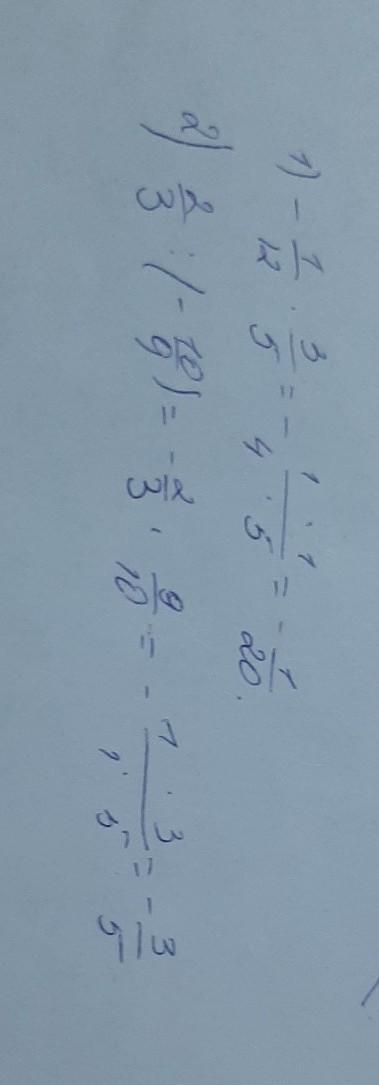 1) - 1/12 · 3/5 = - 1 · 1 / 4 · 5 = - 1/20.
2) 2/3 : (- 10/9) = - 2/3 · 9/10 = - 1 · 3 / 1 · 5 = - 3/5